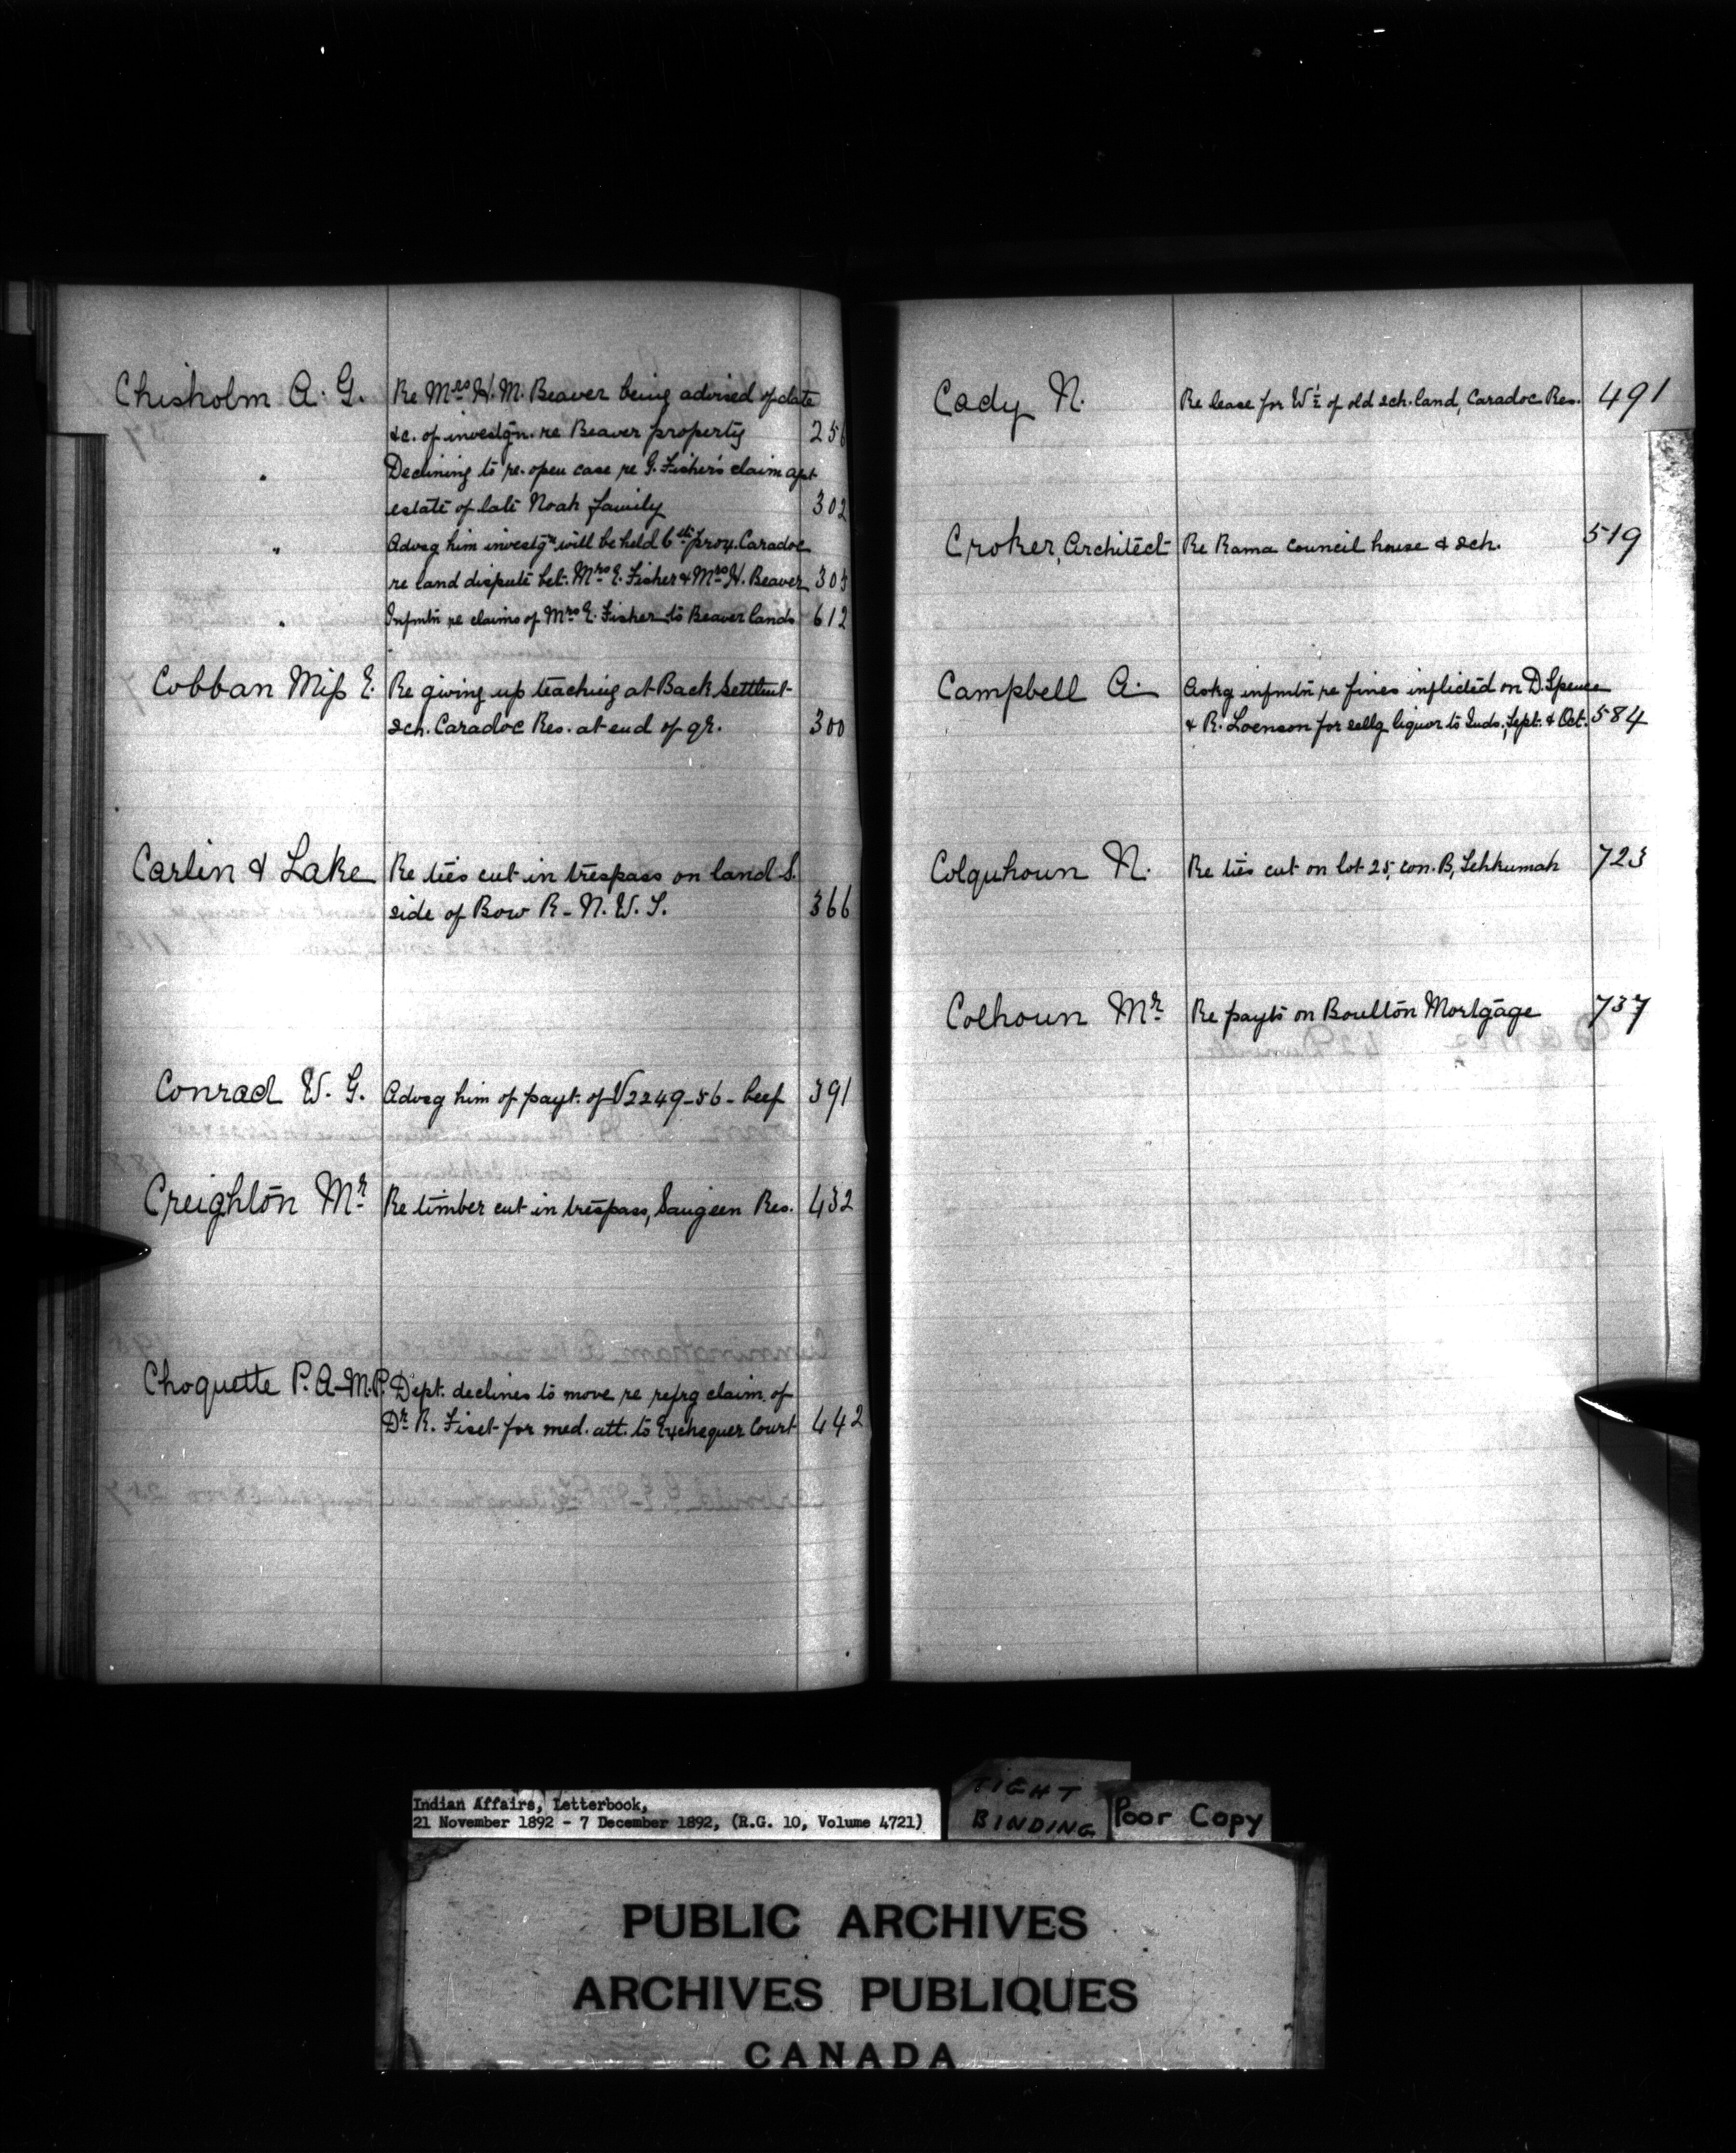 Chisholm A. G. Re Mrs H. M. Beaver being advised of date
&c. of investgn. re Beaver property 256
" Declining to re-open case re G. Fisher's claim agst
estate of late Noah Family 302
" Advsg him investgn will be held 6th prox. Caradoc
re land dispute bet. Mrs E. Fisher & Mrs H. Beaver 303
" Infmtn re claims of Mrs E. Fisher to Beaver lands 612
Cobban Miss E. Re giving up teaching at Back Settlmt
sch. Caradoc Res. at end of qr. 300
Carlin & Lake Re ties cut in trespass on land S.
side of Bow R - N. W. T. 366
Conrad W. G. Advsg him of payt. of $2249-56 - beef 391
Creighton Mr Re timber cut in trespass, Saugeen Res. 432
Choquette P. A - M.P. Dept. declines to move re refrg claim of
Dr R. Fiset for med. att. to Exchequer Court 442
Cady N. Re lease for W ½ of old sch. land, Caradoc Res. 491
Croker, Architect Re Rama council house & sch. 519
Campbell A. Askg infmtn re fines inflicted on D. Spence
& R. Loenson for sellg liquor to Inds, Sept. & Oct. 584
Colquhoun N. Re ties cut on lot 25, con. B, Tehkumah 723
Colhoun Mr Re payts on Boulton Mortgage 737
Indian Affairs, Letterbook,
21 November 1892 - 7 December 1892, (R.G. 10, Volume 4721)
TIGHT
BINDING
Poor Copy
PUBLIC ARCHIVES
ARCHIVES PUBLIQUES
CANADA